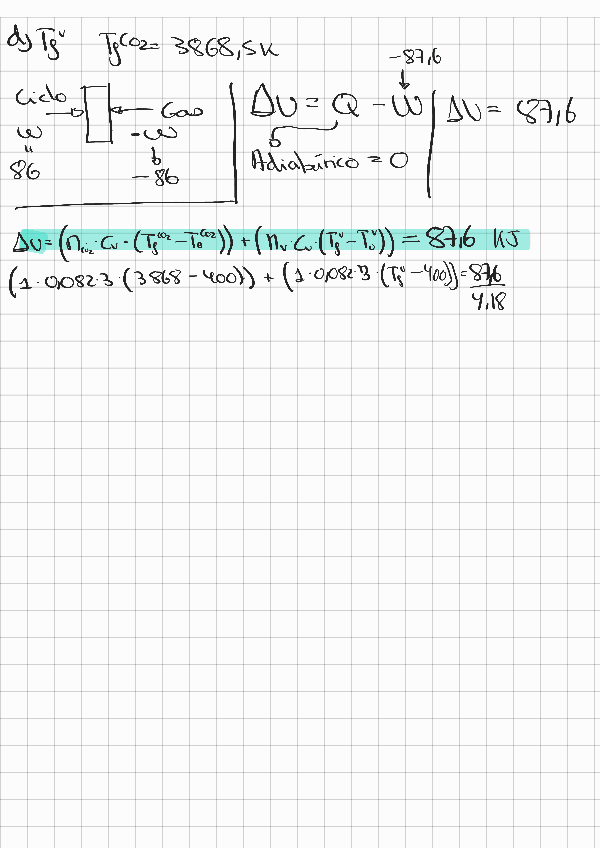 d) Tfᵛ Tf^CO2 = 3868,5K
-87,6
Ciclo
Gas
W
-W
"
86
-86
ΔU = Q - W
Adiabático = 0
ΔU = 87,6
ΔU = (n_CO2 · Cv · (Tf^CO2 - T0^CO2)) + (nv · Cv · (Tf^v - T0^v)) = 87,6 KJ
(1 · 0,082 · 3 · (3868 - 400)) + (1 · 0,082 · 3 · (Tf^v - 400)) = 87,6
4,18